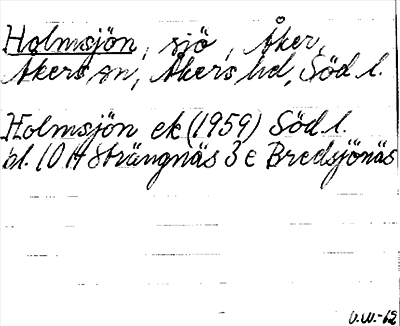 Holmsjön, sjö, Åker,
Åkers sn, Åkers hd, Söd.l.
Holmsjön ek (1959) Söd.l.
bl. 10 H Strängnäs 3 e Bredsjönäs
U.W.-62